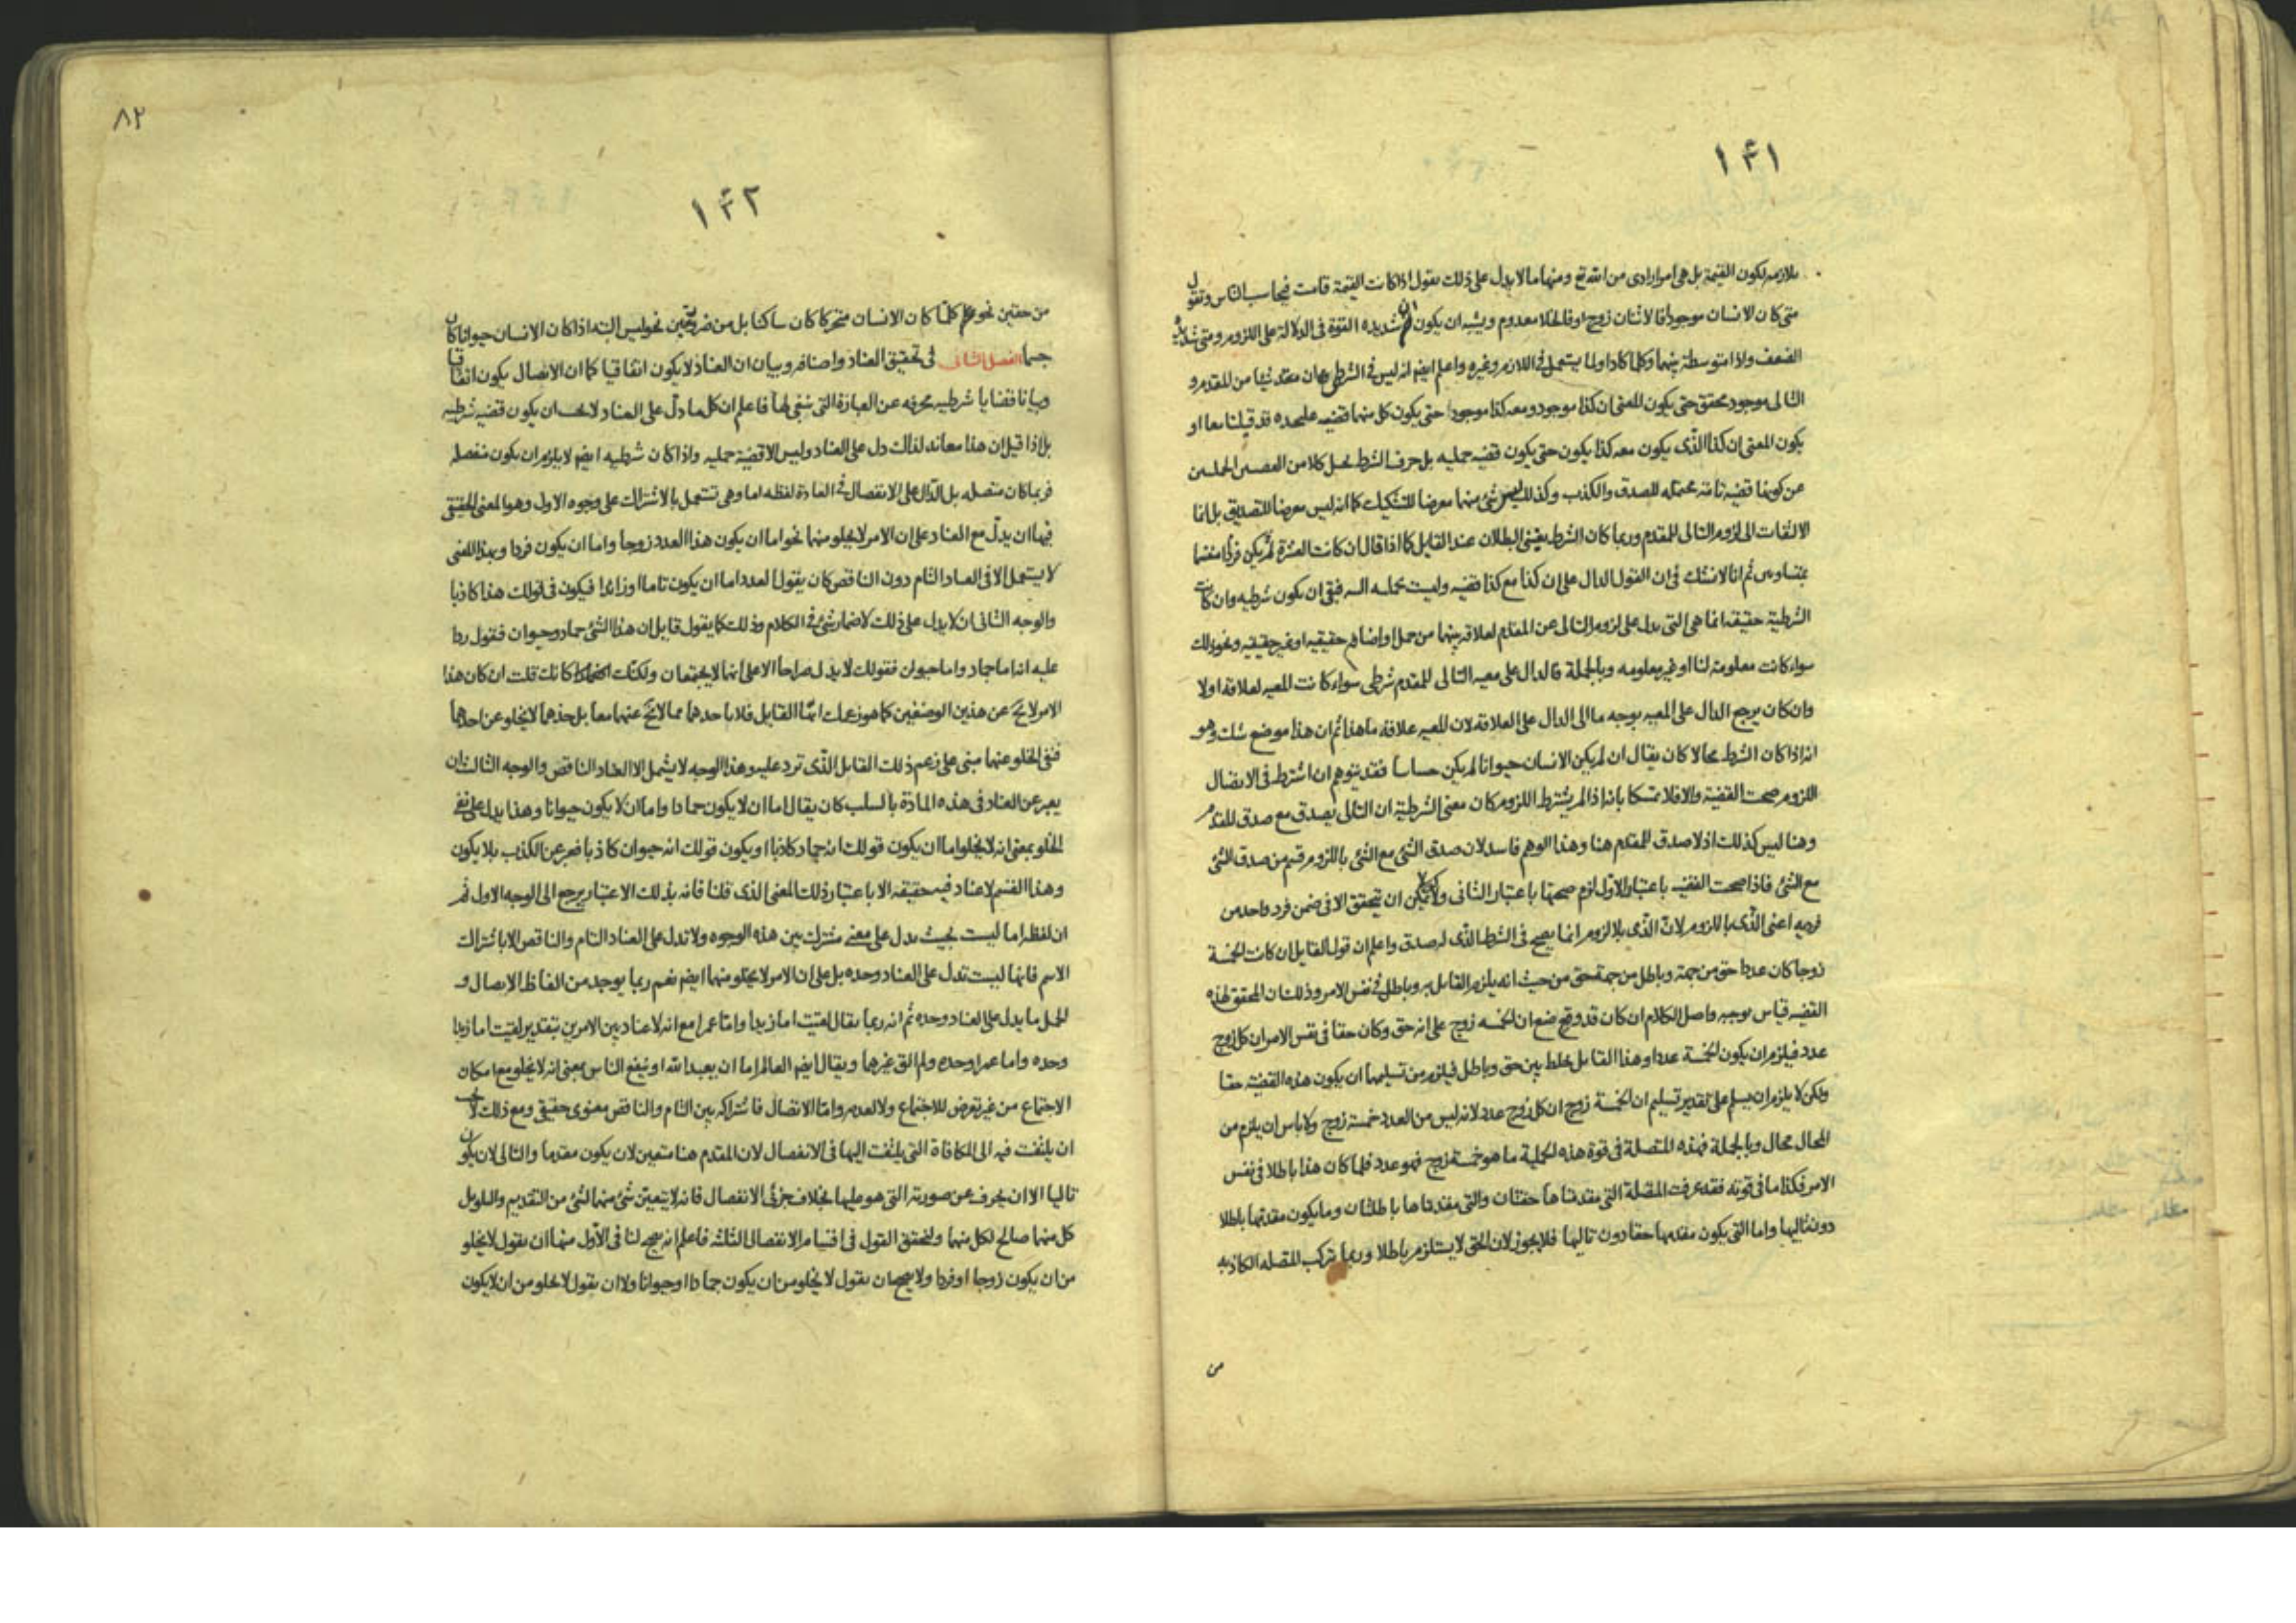 ١٤١
بلازمه لكون القيمة بل هى امر ارادى من الله تع ومنها ما لا يدل على ذلك نقول اذا كانت القيمة قامت فيحاسب الناس وتقول
متى كان الانسان موجودا فالاثنان زوج او فالخلا معدوم ويشبه ان يكون ان شديده القوة فى الدلالة على اللزوم ومتى
الضعف واذا متوسطة بينهما وكلما كاذا ولما يستعمل فى اللازم وغيره واعلم ايضا انه ليس فى الشرطى ان مقد شيئا من المقدم و
التالى موجود محقق حتى يكون المعنى ان كذا موجود ومعه كذا موجود حتى يكون كل منهما قضيه عليحده قد قيلتا معا او
يكون المعنى ان كذا الذى يكون معه كذا يكون حتى يكون قضيه حمليه بل حرف الشرط يحيل كلا من
عن كونها قضيه تامة محتمله للصدق والكذب وكذلك ليس شئ منهما معرضا للتشكيك كما انه ليس معرضا للتصديق بل انما
الالتفات الى لزوم التالى للمقدم وربما كان الشرط يقينى البطلان عند القايل كما اذا قال ان كانت العشرة لم يكن فردا منقسما
بمتساويين ثم انا لا نشك فى ان القول الدال على ان كذا مع كذا قضيه وليست حمليه فبقى ان يكون شرطيه وان كانت
الشرطية حقيقه انما هى التى يدل على لزوم التالى عن المقدم لعلاقه بينهما من حمل او اضافه حقيقيه او غير حقيقيه ونحو ذلك
سواء كانت معلومة لنا او غير معلومه وبالجملة فالدال على معيه التالى للمقدم شرطى سواء كانت المعيه لعلاقه او لا
وان كان يرجع الدال على المعيه بوجه ما الى الدال على العلاقه لان المعيه علاقة ما هذا ثم ان هذا موضع شك وهو
انه اذا كان الشرط محالا كان يقال ان لم يكن الانسان حيوانا لم يكن حساسا فقد يتوهم ان اشترط فى الاتصال
اللزوم صحت القضية والا فلا تمسكا بانه اذا لم يشترط اللزوم كان معنى الشرطية ان التالى يصدق مع صدق المقدم
وهنا ليس كذلك اذ لا صدق للمقدم هنا وهذا الوهم فاسد لان صدق الشئ مع الشئ باللزوم قسم من صدق الشئ
مع الشئ فاذا صحت القضيه باعتبار الاول لزم صحتها باعتبار الثانى ولا يمكن ان يتحقق الا فى ضمن فرد واحد من
فرديه اعنى الذى باللزوم لان الذى بلا لزوم انما يصح فى الشرط الذى له صدق واعلم ان قول القايل ان كانت الخمسة
زوجا كان عددا حق من جهة وباطل من جهة حق من حيث انه يلزم القايل به وباطل فى نفس الامر وذلك ان المحقق لهذه
القضيه قياس موجبه واصل الكلام ان كان قد وقع ضع ان الخمسه زوج على انه حق وكان حقا فى نفس الامر ان كل زوج
عدد فيلزم ان يكون الخمسة عددا وهذا القايل خلط بين حق وباطل فيلزم من تسليمهما ان يكون هذه القضيه حقا
ولكن لا يلزم ان يسلم على تقدير تسليم ان الخمسة زوج ان كل زوج عدد لانه ليس من العدد خمسة زوج ولا باس ان يلزم من
المحال محال وبالجملة فهذه المتصلة فى قوة هذه الحملية ما هو خمسة زوج فهو عدد فلما كان هذا باطلا فى نفس
الامر فكذا ما فى قوته فقد عرفت المتصلة التى مقدمتاها حقتان والتى مقدمتاها باطلتان وما يكون مقدمها باطلا
دون تاليها واما التى يكون مقدمها حقا دون تاليها فلا يجوز لان الحق لا يستلزم باطلا وربما تركب المتصله الكاذبه
من
٨٢
١٤٢
من حقين نحو كلما كان الانسان متحركا كان ساكنا بل من ضروريتين نحو ليس البته اذا كان الانسان حيوانا كان
جسما الفصل الثانى فى تحقيق العناد واصنافه وبيان ان العناد لا يكون اتفاقيا كما ان الاتصال يكون اتفاقيا
وبيانا قضايا شرطيه محرفه عن العبارة التى ينبغى لها فاعلم ان كل ما دل على العناد لا يجب ان يكون قضيه شرطيه
بل اذا قيل ان هذا معاند لذاك دل على العناد وليس الا قضية حمليه واذا كان شرطيه ايضا لا يلزم ان يكون منفصله
فربما كان متصله بل الدال على الانفصال فى العادة لفظه اما وهى تستعمل بالاشتراك على وجوه الاول وهو المعنى الحقيقى
فيها ان يدل مع العناد على ان الامر لا يخلو منهما نحو اما ان يكون هذا العدد زوجا واما ان يكون فردا وبهذا المعنى
لا يستعمل الا فى العناد التام دون الناقص كان يقول العدد اما ان يكون تاما او زائدا فيكون فى قولك هذا كاذبا
والوجه الثانى ان لا يدل على ذلك لاضمار شئ فى الكلام وذلك كما يقول قايل ان هذا الشئ جماد وحيوان فتقول ردا
عليه انه اما جماد واما حيوان فقولك لا يدل صراحا الا على انهما لا يجتمعان ولكنك كانك قلت ان كان هذا
الامر لا يخ عن هذين الوصفين كما هو زعمك ايها القايل فلا باحدهما مما لا يخ عنهما معا بل حذهما لا يخلو عن احدهما
فنفى الخلو عنهما مبنى على زعم ذلك القايل الذى ترد عليه وهذا الوجه لا يشمل الا العناد الناقص والوجه الثالث ان
يعبر عن العناد فى هذه المادة بالسلب كان يقال اما ان لا يكون جمادا واما ان لا يكون حيوانا وهذا يدل على نفى
الخلو بمعنى انه لا يخلوا ما ان يكون قولك انه جماد كاذبا او يكون قولك انه حيوان كاذبا فعبر عن الكذب بلا يكون
وهذا القسم لا عناد فيه حقيقه الا باعتبار ذلك المعنى الذى قلنا فانه بذلك الاعتبار يرجع الى الوجه الاول ثم
ان لفظه اما ليست بحيث يدل على معنى مشترك بين هذه الوجوه ولا تدل على العناد التام والناقص الا باشتراك
الاسم فانها ليست تدل على العناد وحده بل على ان الامر لا يخلو منهما ايضا نعم ربما يوجد من الفاظ الاتصال و
الحمل ما يدل على العناد وحده ثم انه ربما يقال لقيت اما زيدا واما عمرا مع انه لا عناد بين الامرين بتقدير لقيت اما زيدا
وحده واما عمرا وحده ولم الق غيرهما ويقال ايضا العالم اما ان يعبد الله او ينفع الناس بمعنى انه لا يخلو مع امكان
الاجتماع من غير تعرض للاجتماع ولا لعدمه واما الاتصال فاشتراكه بين التام والناقص معنوى حقيقى ومع ذلك لا يجب
ان يلتفت فيه الى المكافاة التى يلتفت اليها فى الانفصال لان المقدم هنا متعين لان يكون مقدما والتالى لان يكون
تاليا الا ان يحرف عن صورته التى هو عليها بخلاف جزئى الانفصال فانه لا يتعين شئ منهما لشئ من التقديم والتلو بل
كل منهما صالح لكل منهما ولنحقق القول فى اقسام الانفصال الثلثه فاعلم انه يصح لنا فى الاول منهما ان نقول لا يخلو
من ان يكون زوجا او فردا ولا يصح ان نقول لا يخلو من ان يكون جمادا او حيوانا ولا ان نقول لا يخلو من ان لا يكون